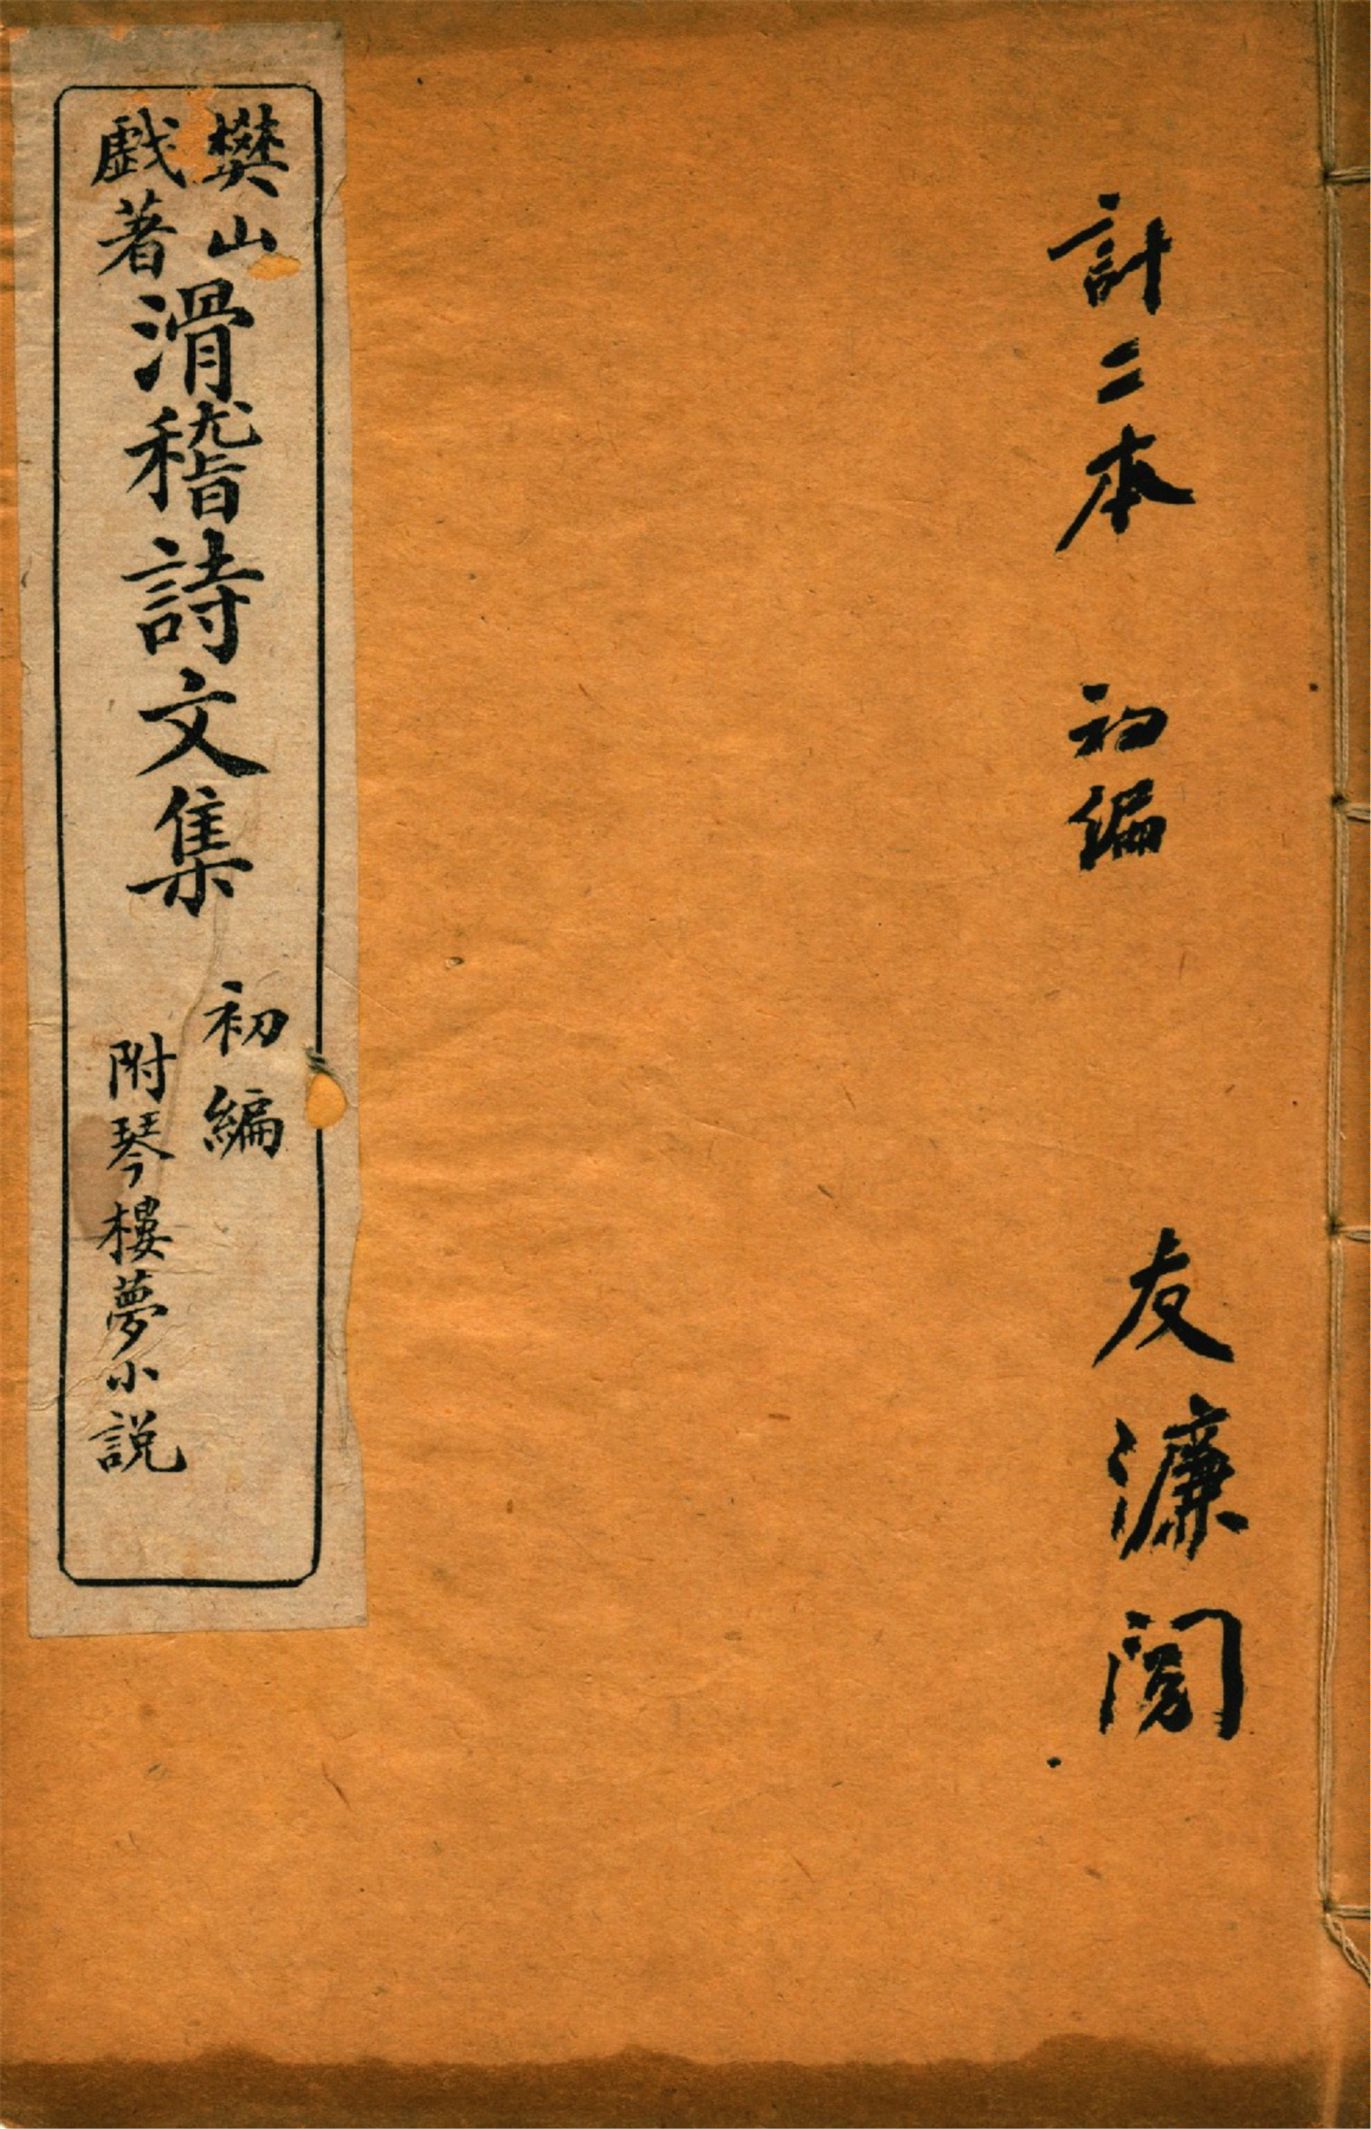 計二本 初編 友濂閱
樊山
戲著
滑稽詩文集
初編
附琴樓夢小説